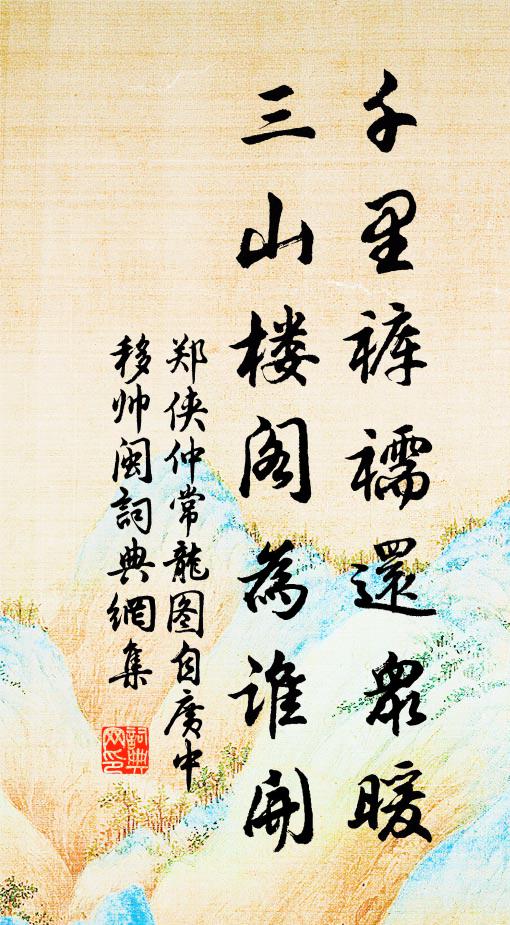 千里裤襦還衆暖
三山楼阁為誰開
郑侠仲常龍图自廣中
移帅闽詞典網集
詞典
网印